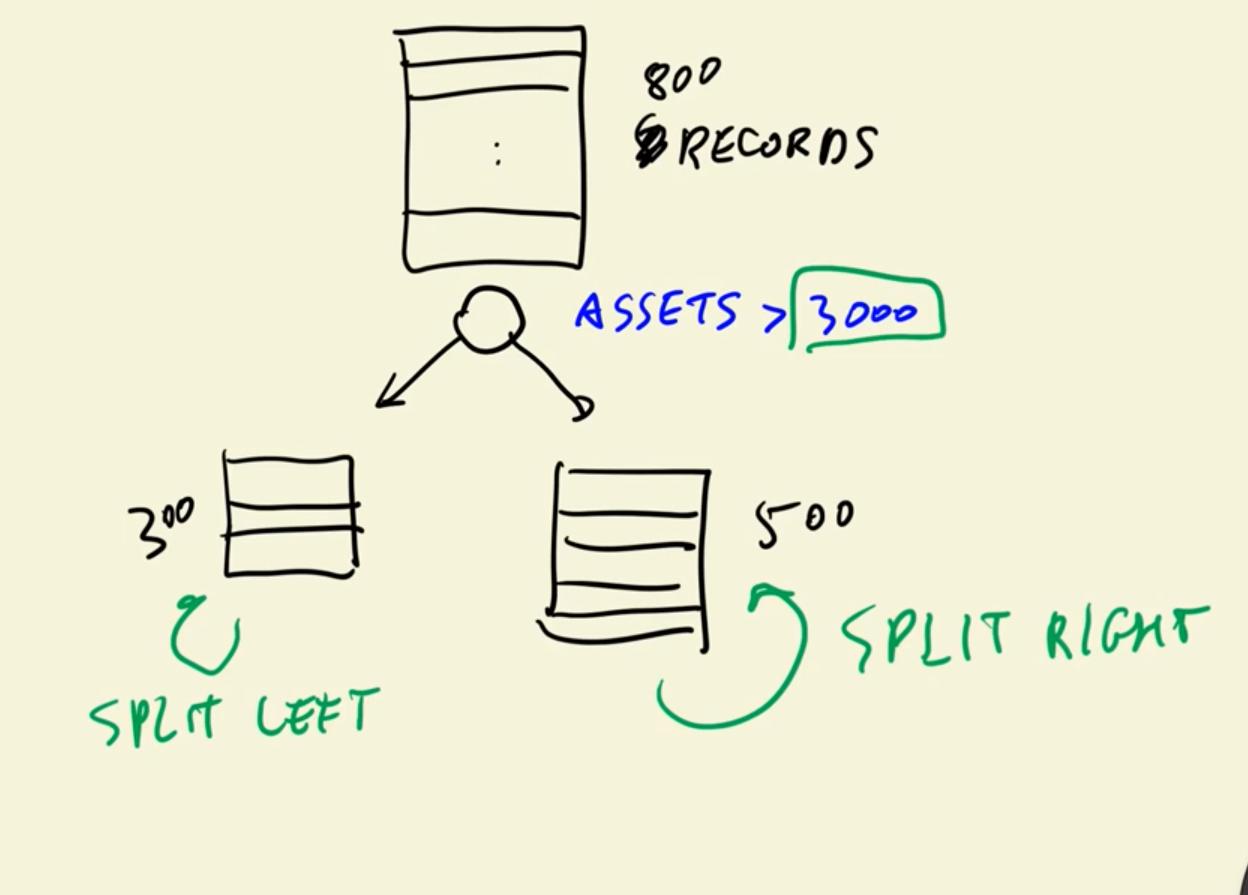 800
RECORDS
ASSETS > 3000
300
500
SPLIT RIGHT
SPLIT LEFT